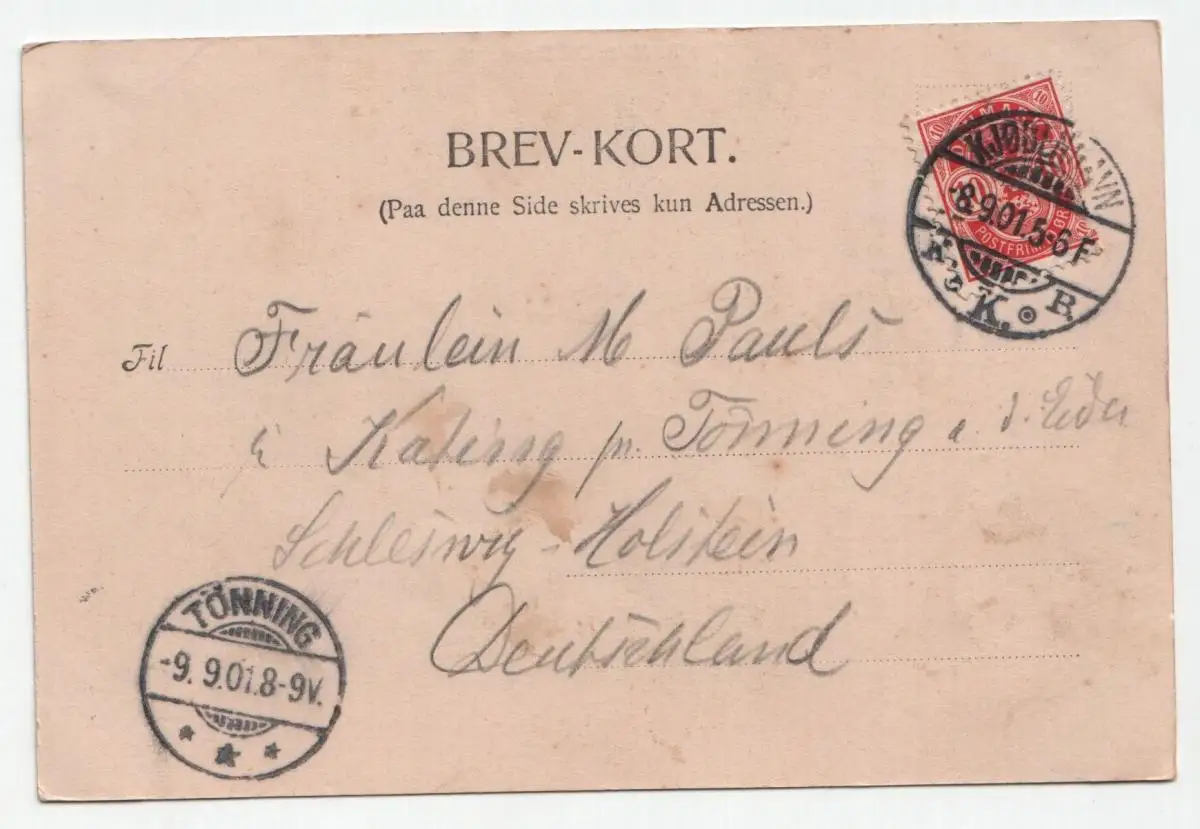 BREV-KORT.
(Paa denne Side skrives kun Adressen.)
10 10
POSTFRIM
KJØB HAVN
-8.9.01.5-6 F
K. K. B.
Til Fräulein M Pauls
Kating pr. Tönning a. d. Eider
Schleswig-Holstein
Deutschland
TÖNNING
-9. 9.01.8-9V.